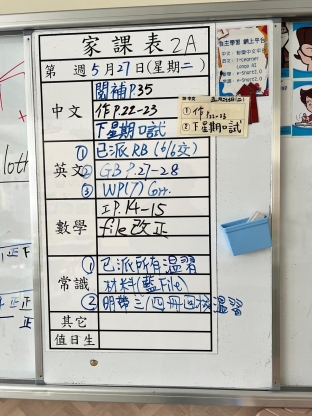 家課表 2A
第 週 5月27日(星期二)
中文
閱補P.35
作P.22-23
下星期口試
英文
① 已派RB (6/6交)
② GB P.27-28
③ WP(7) Grr.
數學
P.14-15
file改正
常識
① 已派所有溫習
材料(藍File)
② 明帶三/四冊回校溫習
其它
值日生
① 作P.22-23
② 下星期口試
自主學習 網上平台